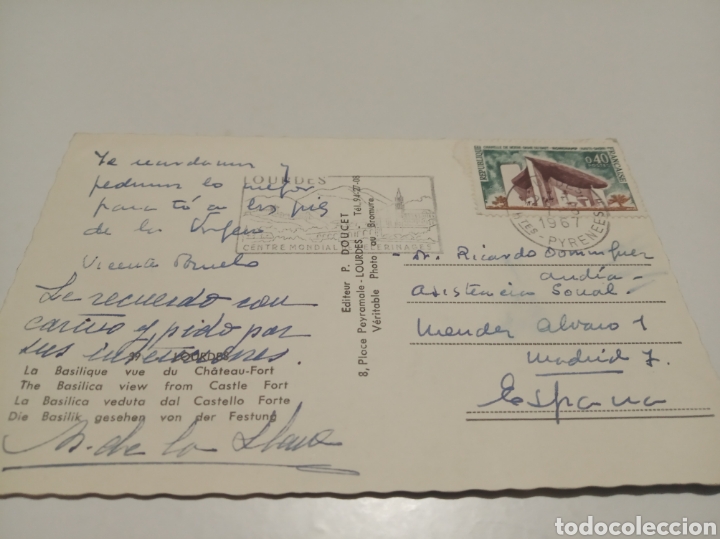 Te recordamos y
pedimos lo mejor
para tí a los pies
de la Virgen
Vicenta
Le recuerdo con
cariño y pido por
sus intenciones.
LOURDES
La Basilique vue du Château-Fort
The Basilica view from Castle Fort
La Basilica veduta dal Castello Forte
Die Basilik gesehen von der Festung
M. de la Llave
LOURDES
CENTRE MONDIAL PELERINAGES
Editeur P. DOUCET
8, Place Peyramale - LOURDES - Tél. 94-27-08
Véritable Photo au Bromure
REPUBLIQUE FRANÇAISE
0,40
1967
PYRENEES
Dr. Ricardo Dominguez
Asistencia Social
Mendez Alvaro 1
Madrid 7.
España
todocoleccion